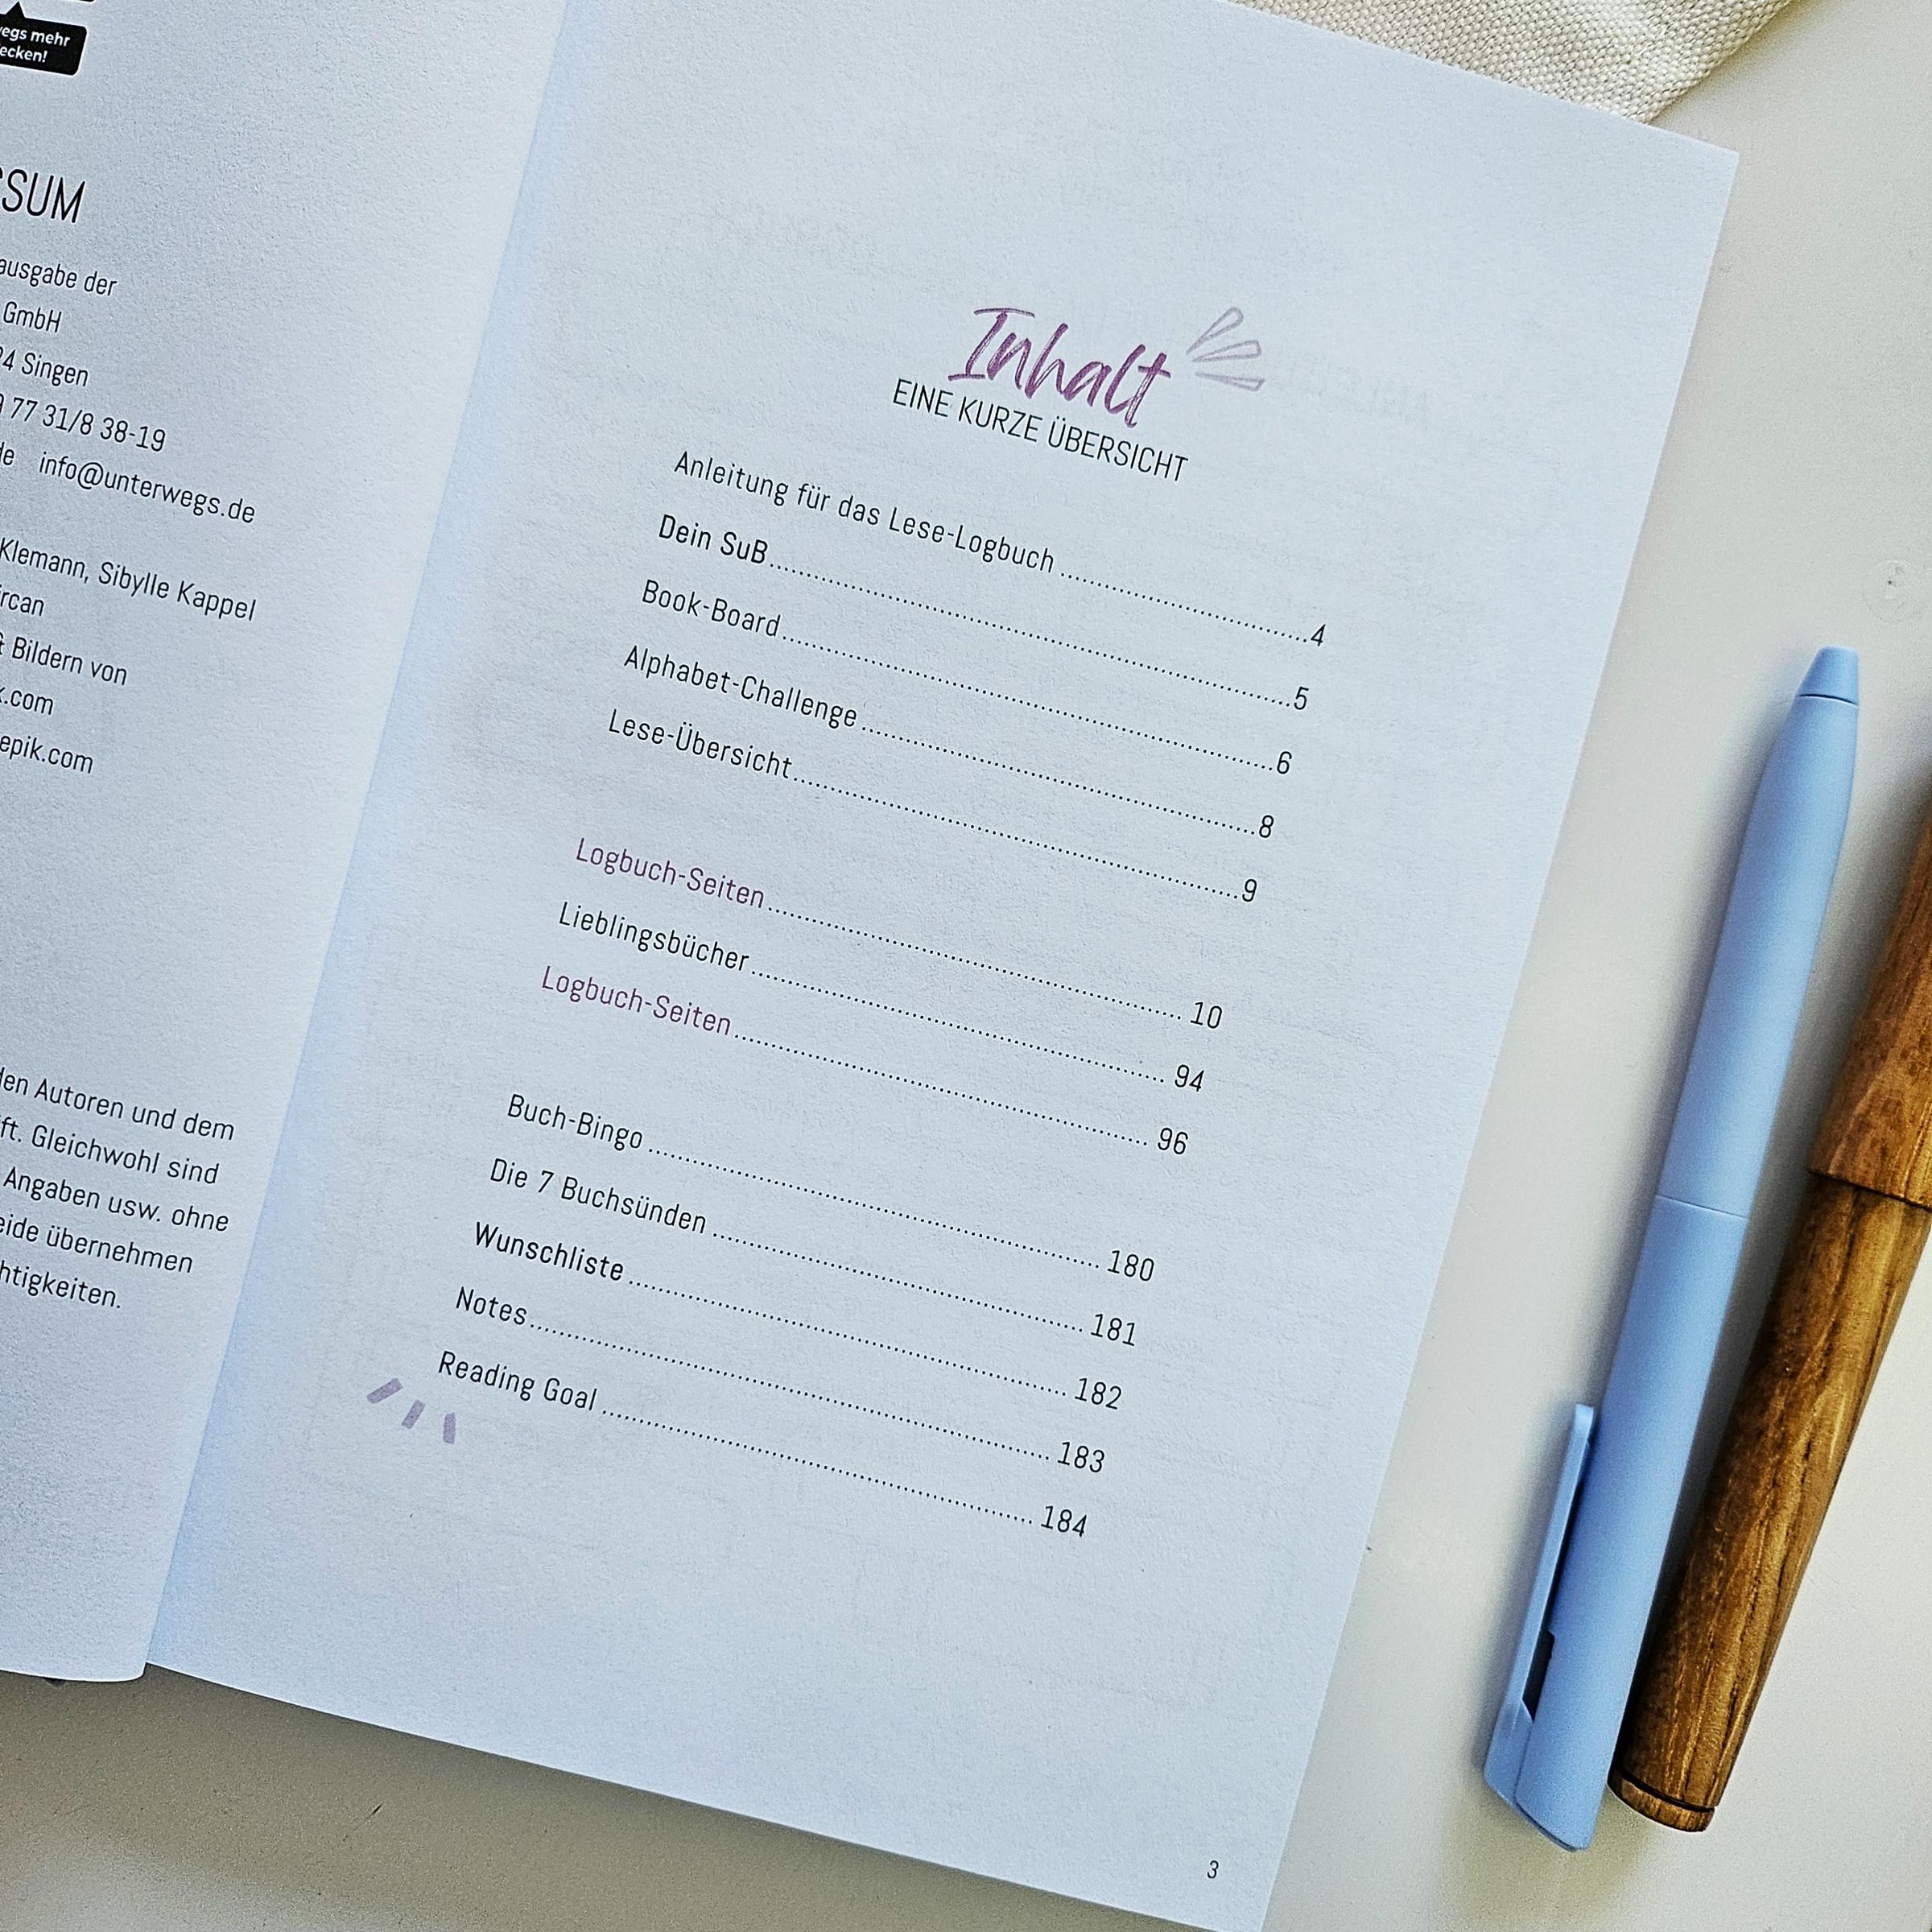 mehr
SUM
ausgabe der
GmbH
Singen
77 31/8 38-19
info@unterwegs.de
Klemann, Sibylle Kappel
Bildern von
Autoren und dem
Gleichwohl sind
Angaben usw. ohne
übernehmen
Inhalt
EINE KURZE ÜBERSICHT
Anleitung für das Lese-Logbuch 4
Dein SuB 5
Book-Board 6
Alphabet-Challenge 8
Lese-Übersicht 9
Logbuch-Seiten 10
Lieblingsbücher 94
Logbuch-Seiten 96
Buch-Bingo 180
Die 7 Buchsünden 181
Wunschliste 182
Notes 183
Reading Goal 184
3